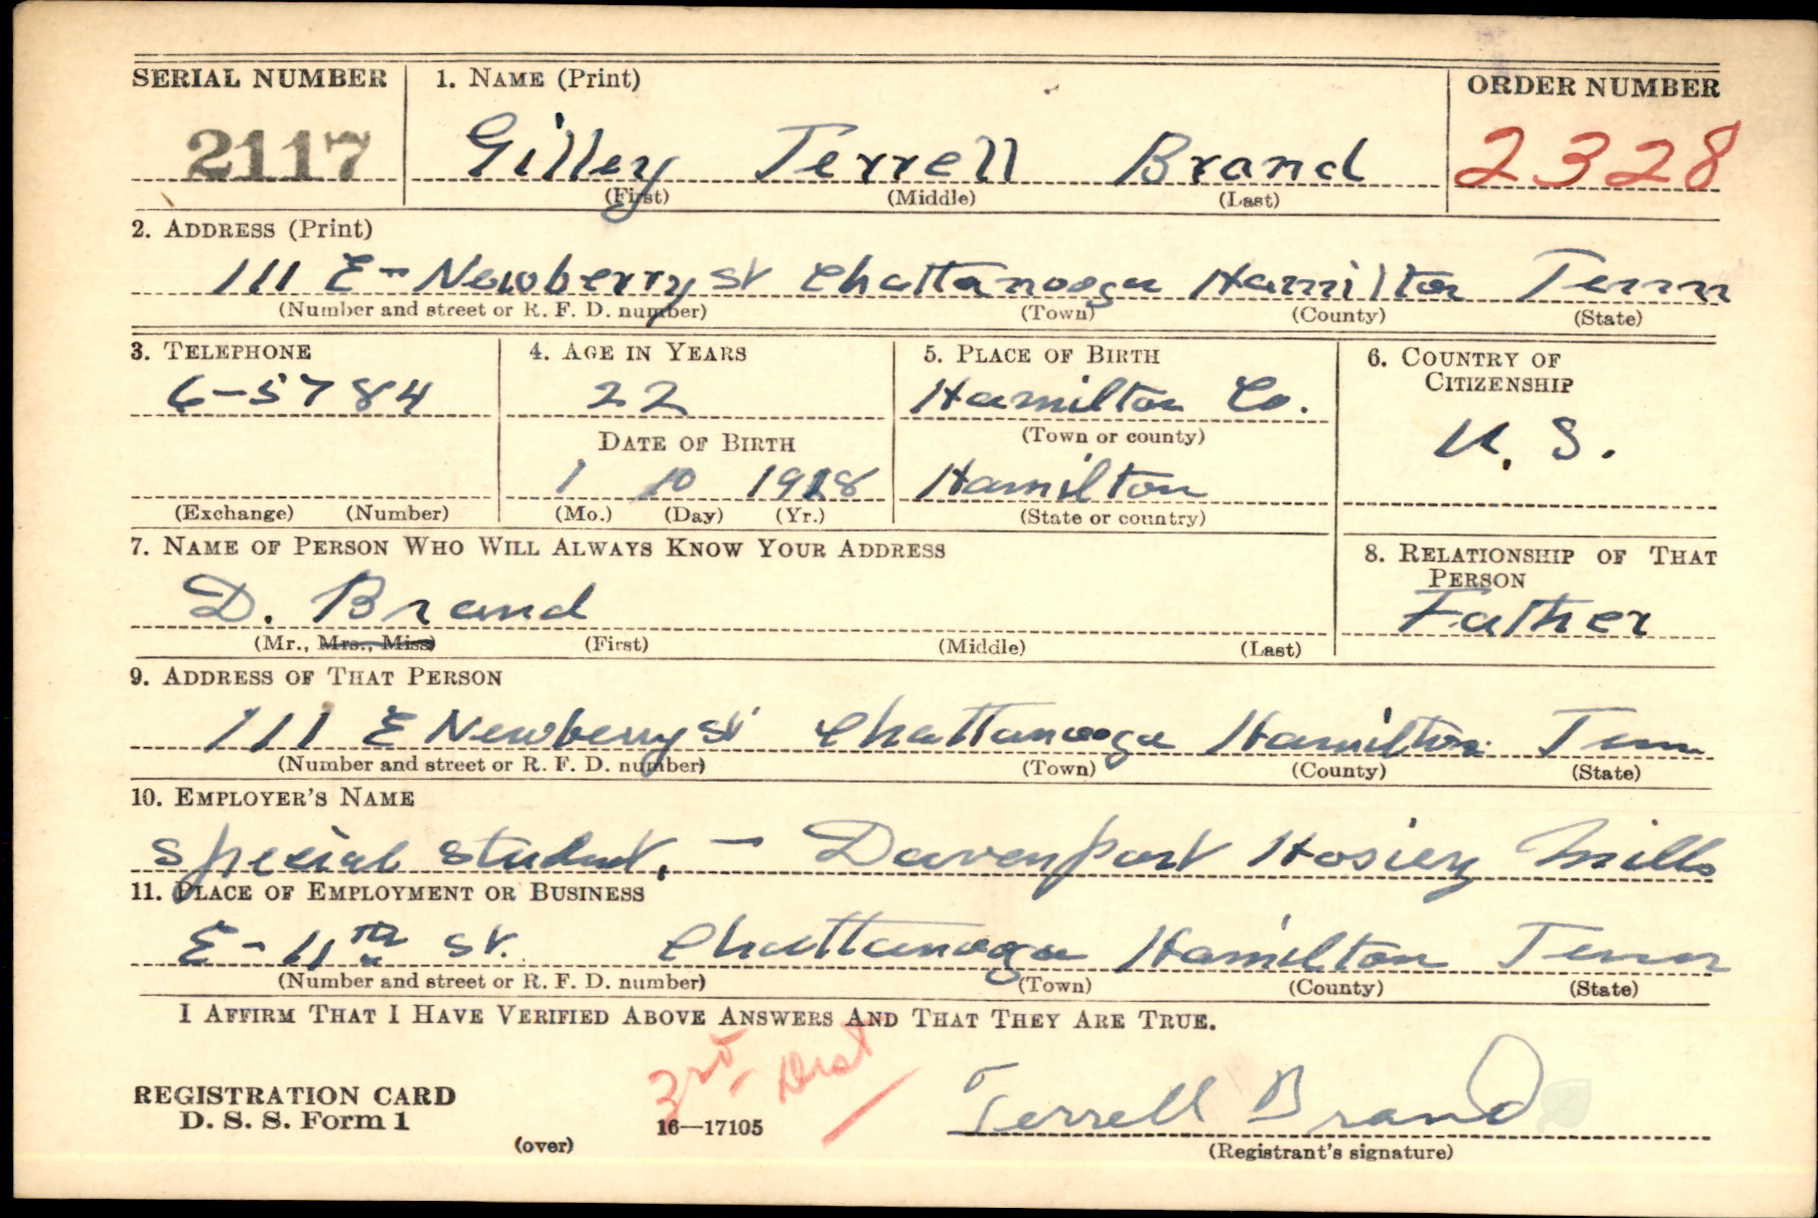 SERIAL NUMBER 1. NAME (Print) ORDER NUMBER
2117 Gilley Terrell Brand 2328
(First) (Middle) (Last)
2. ADDRESS (Print)
111 E-Newberry St Chattanooga Hamilton Tenn
(Number and street or R. F. D. number) (Town) (County) (State)
3. TELEPHONE 4. AGE IN YEARS 5. PLACE OF BIRTH 6. COUNTRY OF CITIZENSHIP
6-5784 22 Hamilton Co. U. S.
DATE OF BIRTH (Town or county)
1 10 1918 Hamilton
(Exchange) (Number) (Mo.) (Day) (Yr.) (State or country)
7. NAME OF PERSON WHO WILL ALWAYS KNOW YOUR ADDRESS 8. RELATIONSHIP OF THAT PERSON
D. Brand Father
(Mr., Mrs., Miss) (First) (Middle) (Last)
9. ADDRESS OF THAT PERSON
111 E Newberry St Chattanooga Hamilton Tenn
(Number and street or R. F. D. number) (Town) (County) (State)
10. EMPLOYER'S NAME
Special student, - Davenport Hosiery Mills
11. PLACE OF EMPLOYMENT OR BUSINESS
E-11th St. Chattanooga Hamilton Tenn
(Number and street or R. F. D. number) (Town) (County) (State)
I AFFIRM THAT I HAVE VERIFIED ABOVE ANSWERS AND THAT THEY ARE TRUE.
3rd Dist
REGISTRATION CARD
D. S. S. Form 1 16—17105 Terrell Brand
(over) (Registrant's signature)